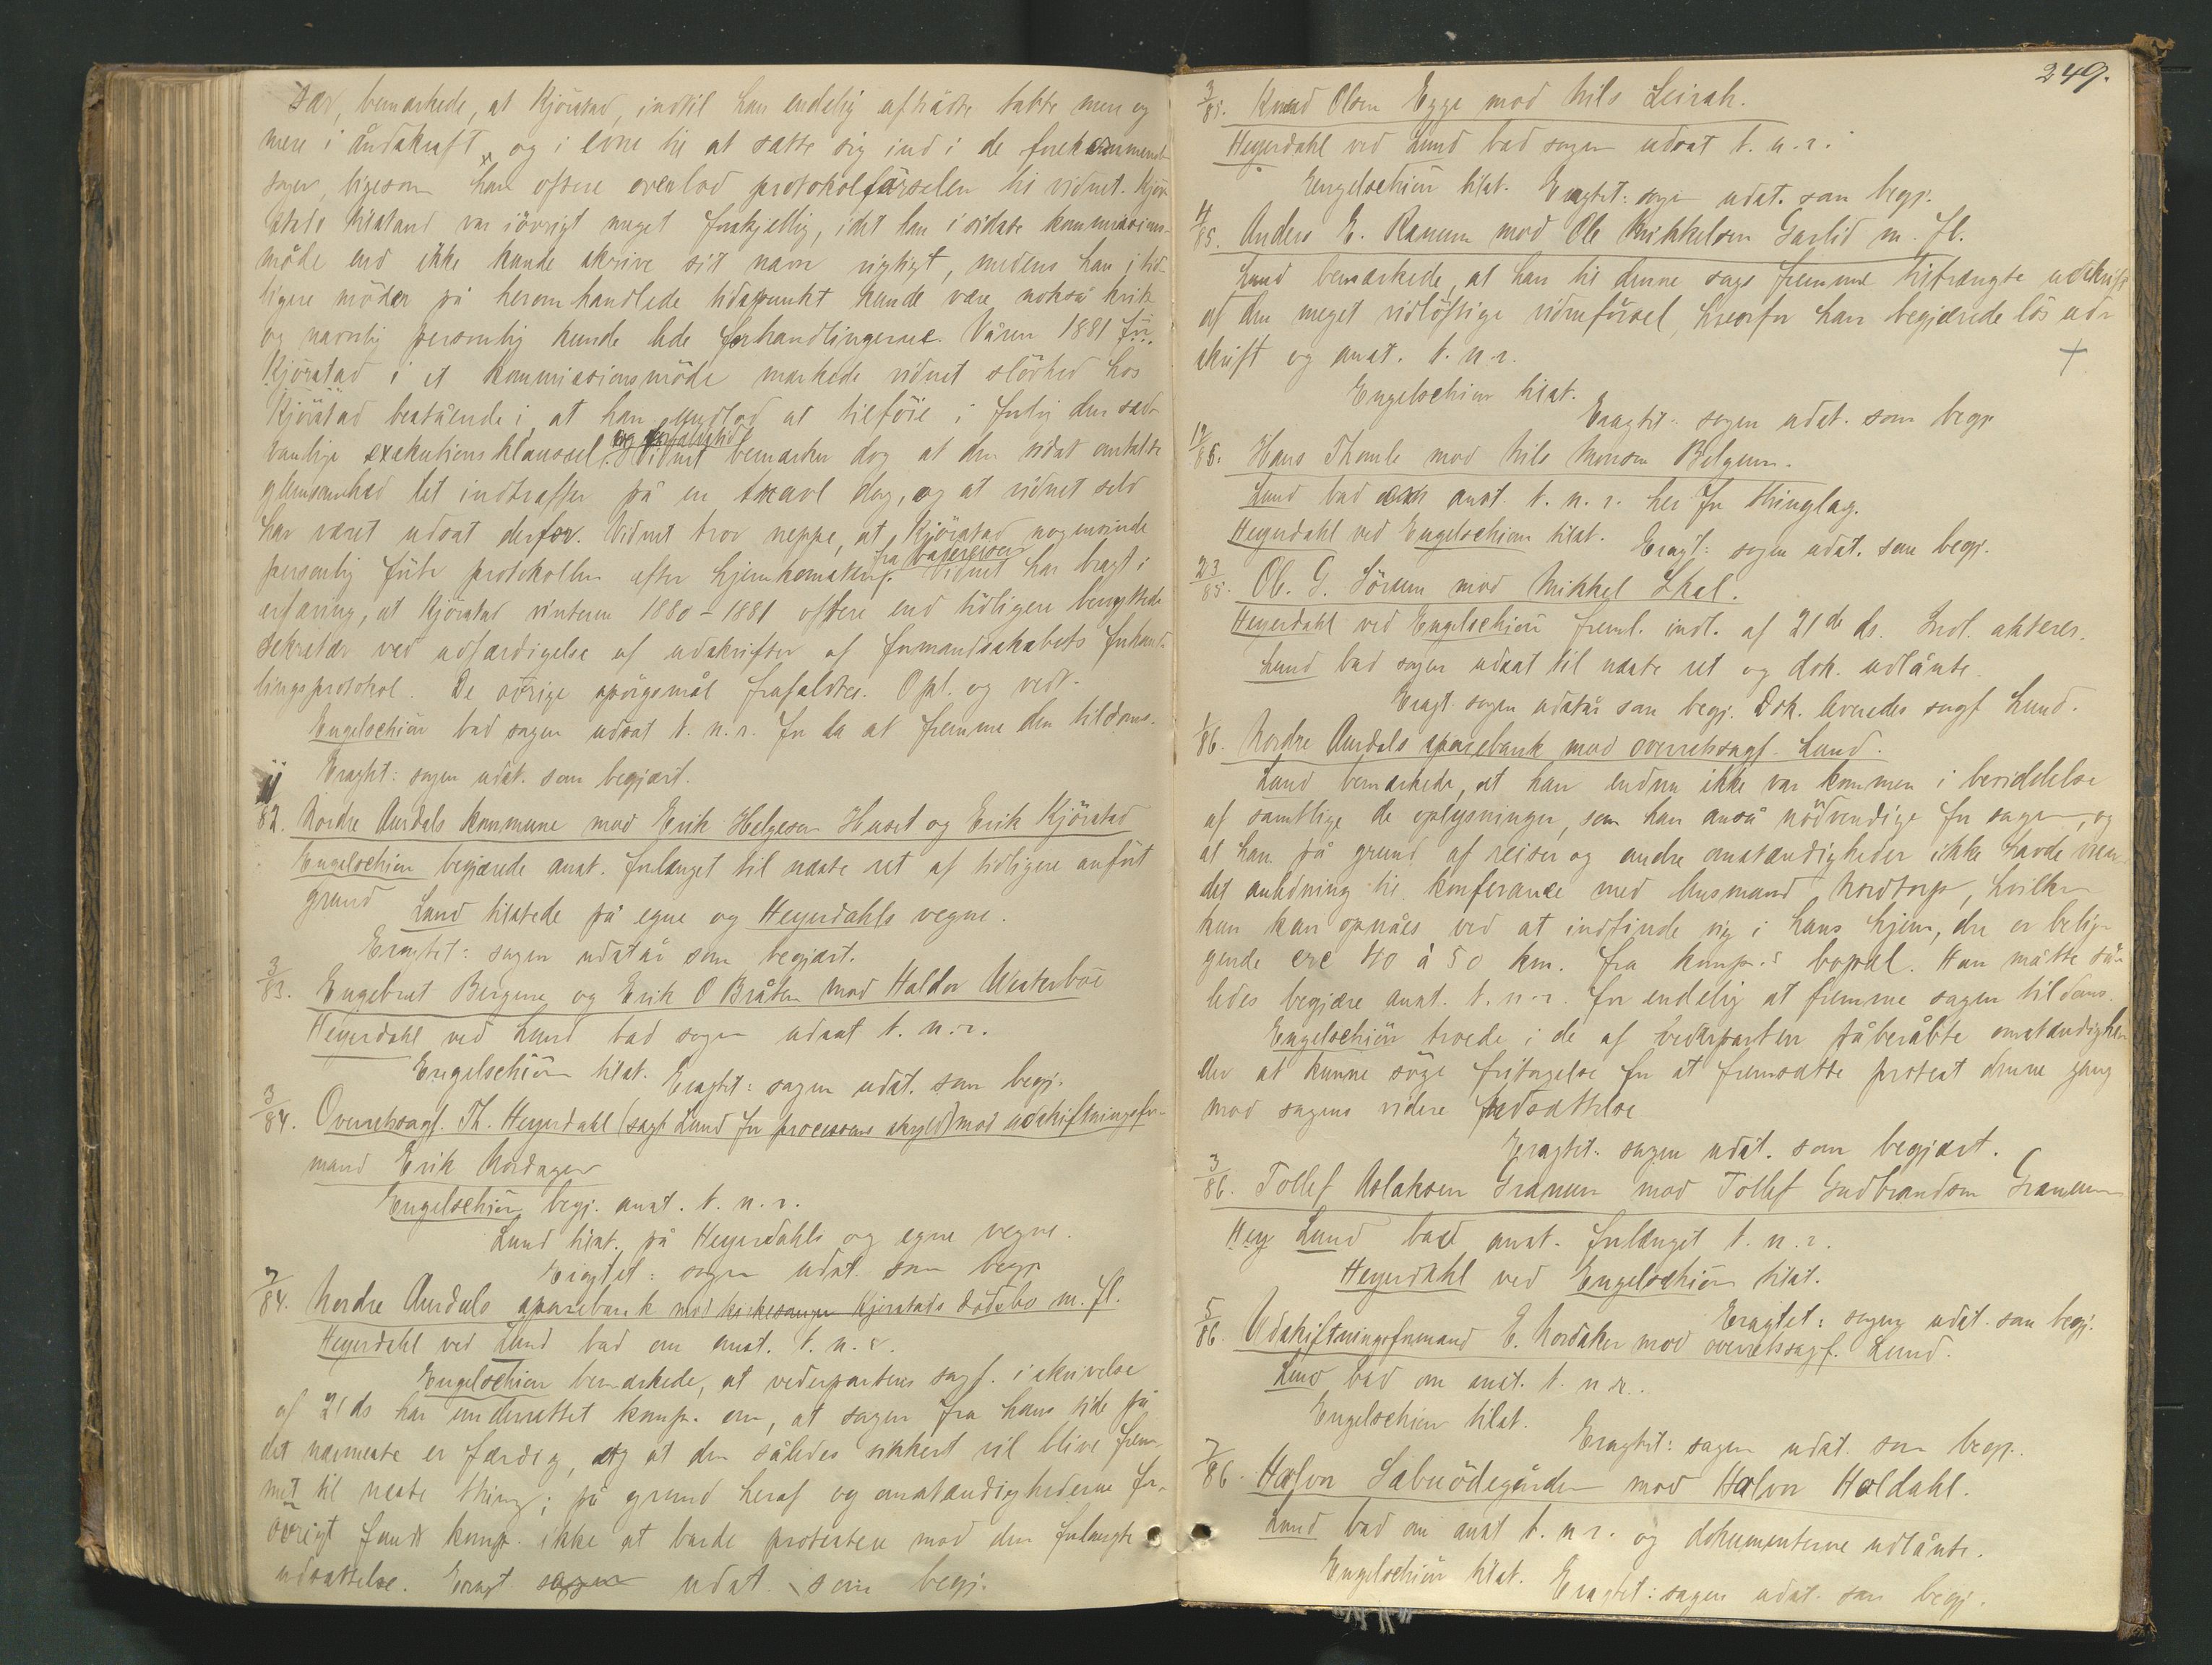 bemærkede, at Kjörstad, indtil han endelig aftrådte tabte mere og
mere i åndskraft og i evne til at sætte sig ind i de forekommende
sager, ligesom han oftere overlod protokolførselen til vidnet. Kjör-
stads tilstand var iövrigt meget forskjellig, idet han i sidste kommissions-
möde end ikke kunde skrive sit navn rigtigt, medens han i tid-
ligere möder på heromhandlede tidspunkt kunde være nokså kvik
og navnlig personlig kunde lede forhandlingerne. Våren 1881 för
Kjörstad i et kommissionsmöde mærkede vidnet slövhed hos
Kjörstad bestående i, at han undlod at tilföie i forlig den sæd-
vanlige exekutionsklausul. Vidnet bemærker dog at den sidst omtalte
glemsomhed let indtræffer på en travl dag, og at vidnet selv
har været udsat derfor. Vidnet tror neppe, at Kjörstad nogensinde
fra
personlig förte protokollen efter hjemkomsten. Vidnet har bragt i
erfaring, at Kjörstad vinteren 1880-1881 oftere end tidligere benyttede
sekretær ved udfærdigelse af udskrifter af formandskabets forhand-
lingsprotokol. De övrige spörgsmål frafaldtes. Opl. og vedt.
Engelschiön bad sagen udsat t. n. r. for da at fremme den til doms.
Eragtet: sagen udst. som begjært.
11/82. Nordre Aurdals kommune mod Erik Helgesen Huset og Erik Kjörstad
Engelschiön begjærede anst. forlænget til næste ret af tidligere anfört
grund
Lund tilstede på egne og Heyerdahls vegne.
Eragtet: sagen udstår som begjært.
3/83. Engebret Bergene og Erik O Bråten mod Haldor Westerboe
Heyerdahl ved Lund bad sagen udsat t. n. r.
Engelschiön tilst. Eragtet: sagen udst. som begj.
3/84. Overretssagf. Th. Heyerdahl (sagf Lund for processens skyld) mod udskiftningsfor-
mand Erik Nordager
Engelschiön begj. anst. t. n. r.
Lund tilst. på Heyerdahls og egne vegne.
Eragtet: sagen udst. som begj
7/84. Nordre Aurdals sparebank mod Kjørstads dødsbo m. fl.
Heyerdahl ved Lund bad om anst. t. n. r.
Engelschiön bemærkede, at vederpartens sagf. i skrivelse
af 21 ds har underrettet komp. om, at sagen fra hans side på
det nærmeste er færdig, og at den således sikkert vil blive frem-
met til neste thing; på grund heraf og omstændighederne for-
övrigt fandt komp. ikke at burde protestere mod den forlangte
udsættelse. Eragt sagen udst. som begj.
249.
3/85. Knud Olsen Egge mod Nils Leirah.
Heyerdahl ved Lund bad sagen udsat t. n. r.
Engelschiön tilst. Eragtet: sagen udst. som begj.
4/85. Anders E. Ranum mod Ole Mikkelsen Garlid m. fl.
Lund bemærkede, at han til denne sags fremme tiltrængte udskrift
af den meget vidlöftige vidneförsel, hvorfor han begjærede lös ud-
skrift og anst. t. n. r.
Engelschiön tilst.
Eragtet: sagen udst. som begj
12/85. Hans Thomle mod Nils Monsen Belgum.
Lund bad anst. t. n. r. her for thinglag.
Heyerdahl ved Engelschiön tilst. Eragt: sagen udst. som begj.
23/85. Ol. G. Sörum mod Mikkel Skal.
Heyerdahl ved Engelschiön freml. indl. af 21de ds. Indl. akteres.
Lund bad sagen udsat til næste ret og dok. udlånte.
Eragt. sagen udstår som begj. Dok. leveredes sagf Lund.
1/86. Nordre Aurdals sparebank mod overretssagf. Lund.
Lund bemærkede, at han endnu ikke var kommen i besiddelse
af samtlige de oplysninger, som han anså nödvendige for sagen, og
at han på grund af reiser og andre omstændigheder ikke havde
det anledning til konferance med husmand Nordtorp, hvilken
kun kan opnåes ved at indfinde sig i hans hjem, der er belig-
gende 40 à 50 km. fra komp.s bopæl. Han måtte så-
ledes begjære anst. t. n. r. for endelig at fremme sagen til doms.
Engelschiön troede i de af vederparten påberåbte omstændighe-
der at kunne söge fritagelse for at fremsætte protest denne gang
mod sagens videre udsættelse
Eragtet: sagen udst. som begjært.
3/86. Tollef Aslaksen Granum mod Tollef Gudbrandsen Granum
Hey Lund bad anst. forlænget t. n. r.
Heyerdahl ved Engelschiön tilst.
Eragtet: sagen udst. som begj.
5/86. Udskiftningsformand E. Nordaker mod overretssagf. Lund.
Lund bad om anst. t. n. r.
Engelschiön tilst.
Eragtet: sagen udst. som begj.
7/86. Halvor Sæbuödegården mod Halvor Holdahl.
Lund bad om anst t. n. r. og dokumenterne udlånte.
Engelschiön tilst. Eragtet: sagen udst. som begj.